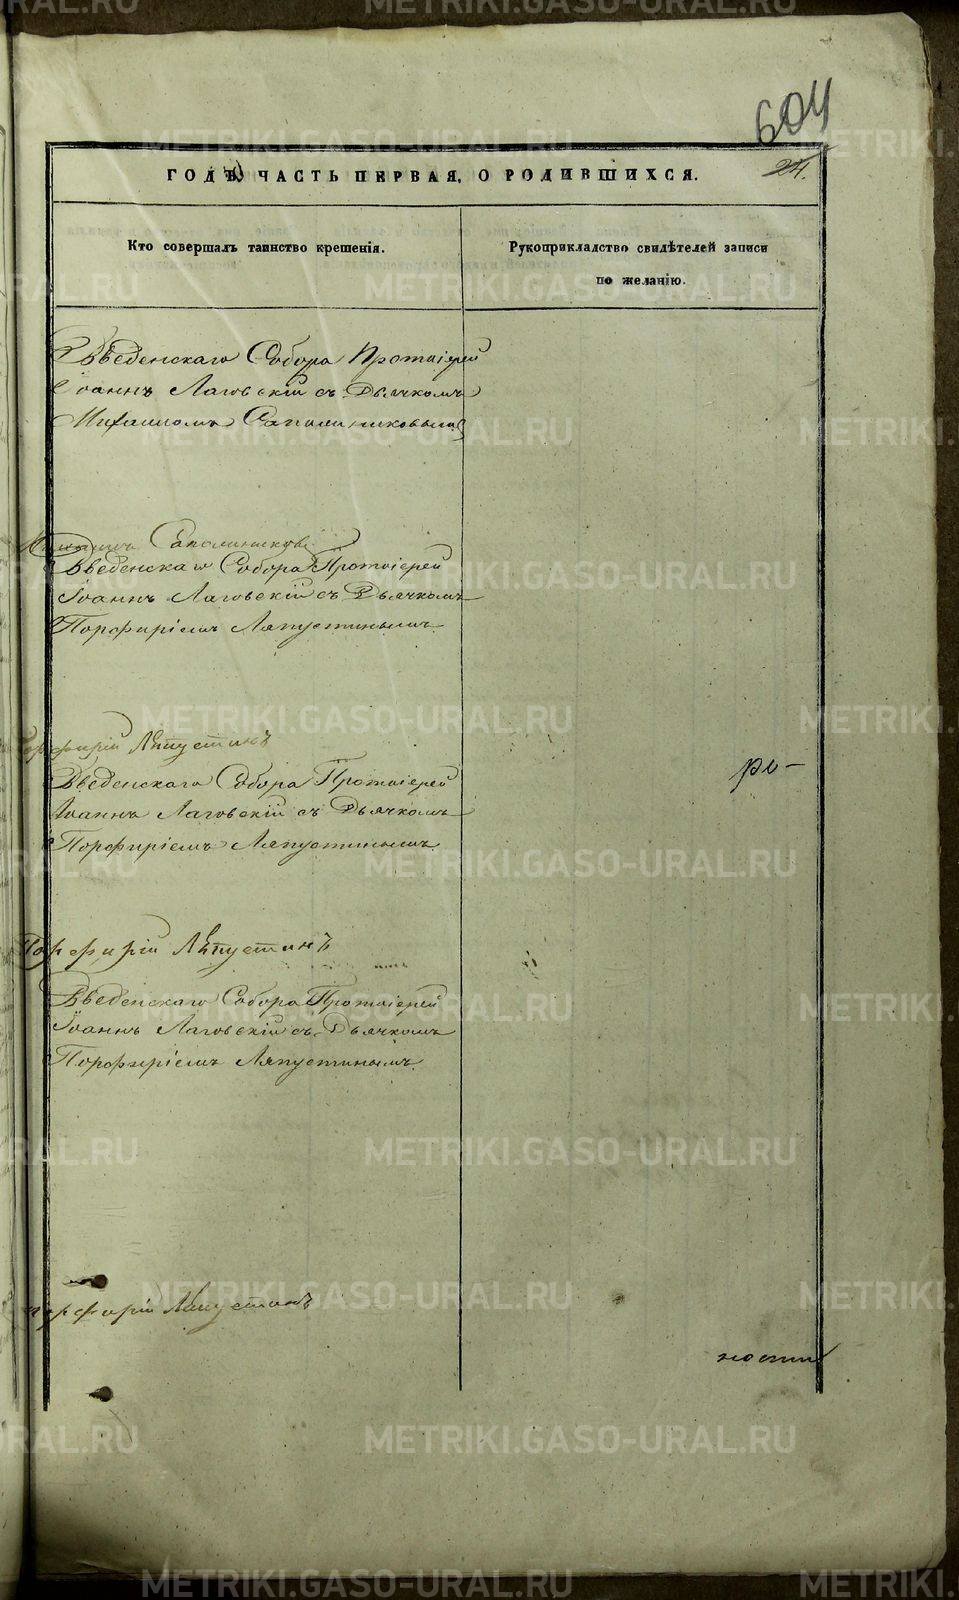 604
24.
ГОДѢ, ЧАСТЬ ПЕРВАЯ, О РОДИВШИХСЯ.
Кто совершалъ таинство крещенія.
Рукоприкладство свидѣтелей записи
по желанію.
Введенскаго Собора Протоіерей
Іоаннъ Лаговскій съ Дьячкомъ
Михаиломъ
Введенскаго Собора Протоіерей
Іоаннъ Лаговскій съ Дьячкомъ
Порфиріемъ Ляпустинымъ
Порфирій Ляпустинъ
ро-
Введенскаго Собора Протоіерей
Іоаннъ Лаговскій съ Дьячкомъ
Порфиріемъ Ляпустинымъ
Порфирій Ляпустинъ
Введенскаго Собора Протоіерей
Іоаннъ Лаговскій съ Дьячкомъ
Порфиріемъ Ляпустинымъ
Порфирій Ляпустинъ
ности
METRIKI.GASO-URAL.RU